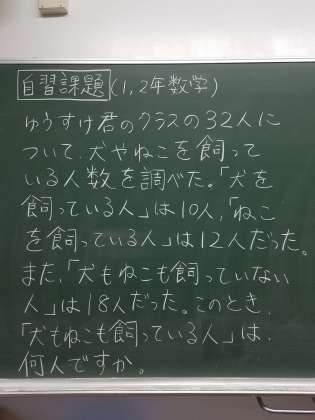 自習課題(1,2年数学)
ゆうすけ君のクラスの32人に
ついて、犬やねこを飼って
いる人数を調べた。「犬を
飼っている人」は10人,「ねこ
を飼っている人」は12人だった。
また,「犬もねこも飼っていない
人」は18人だった。このとき,
「犬もねこも飼っている人」は,
何人ですか。